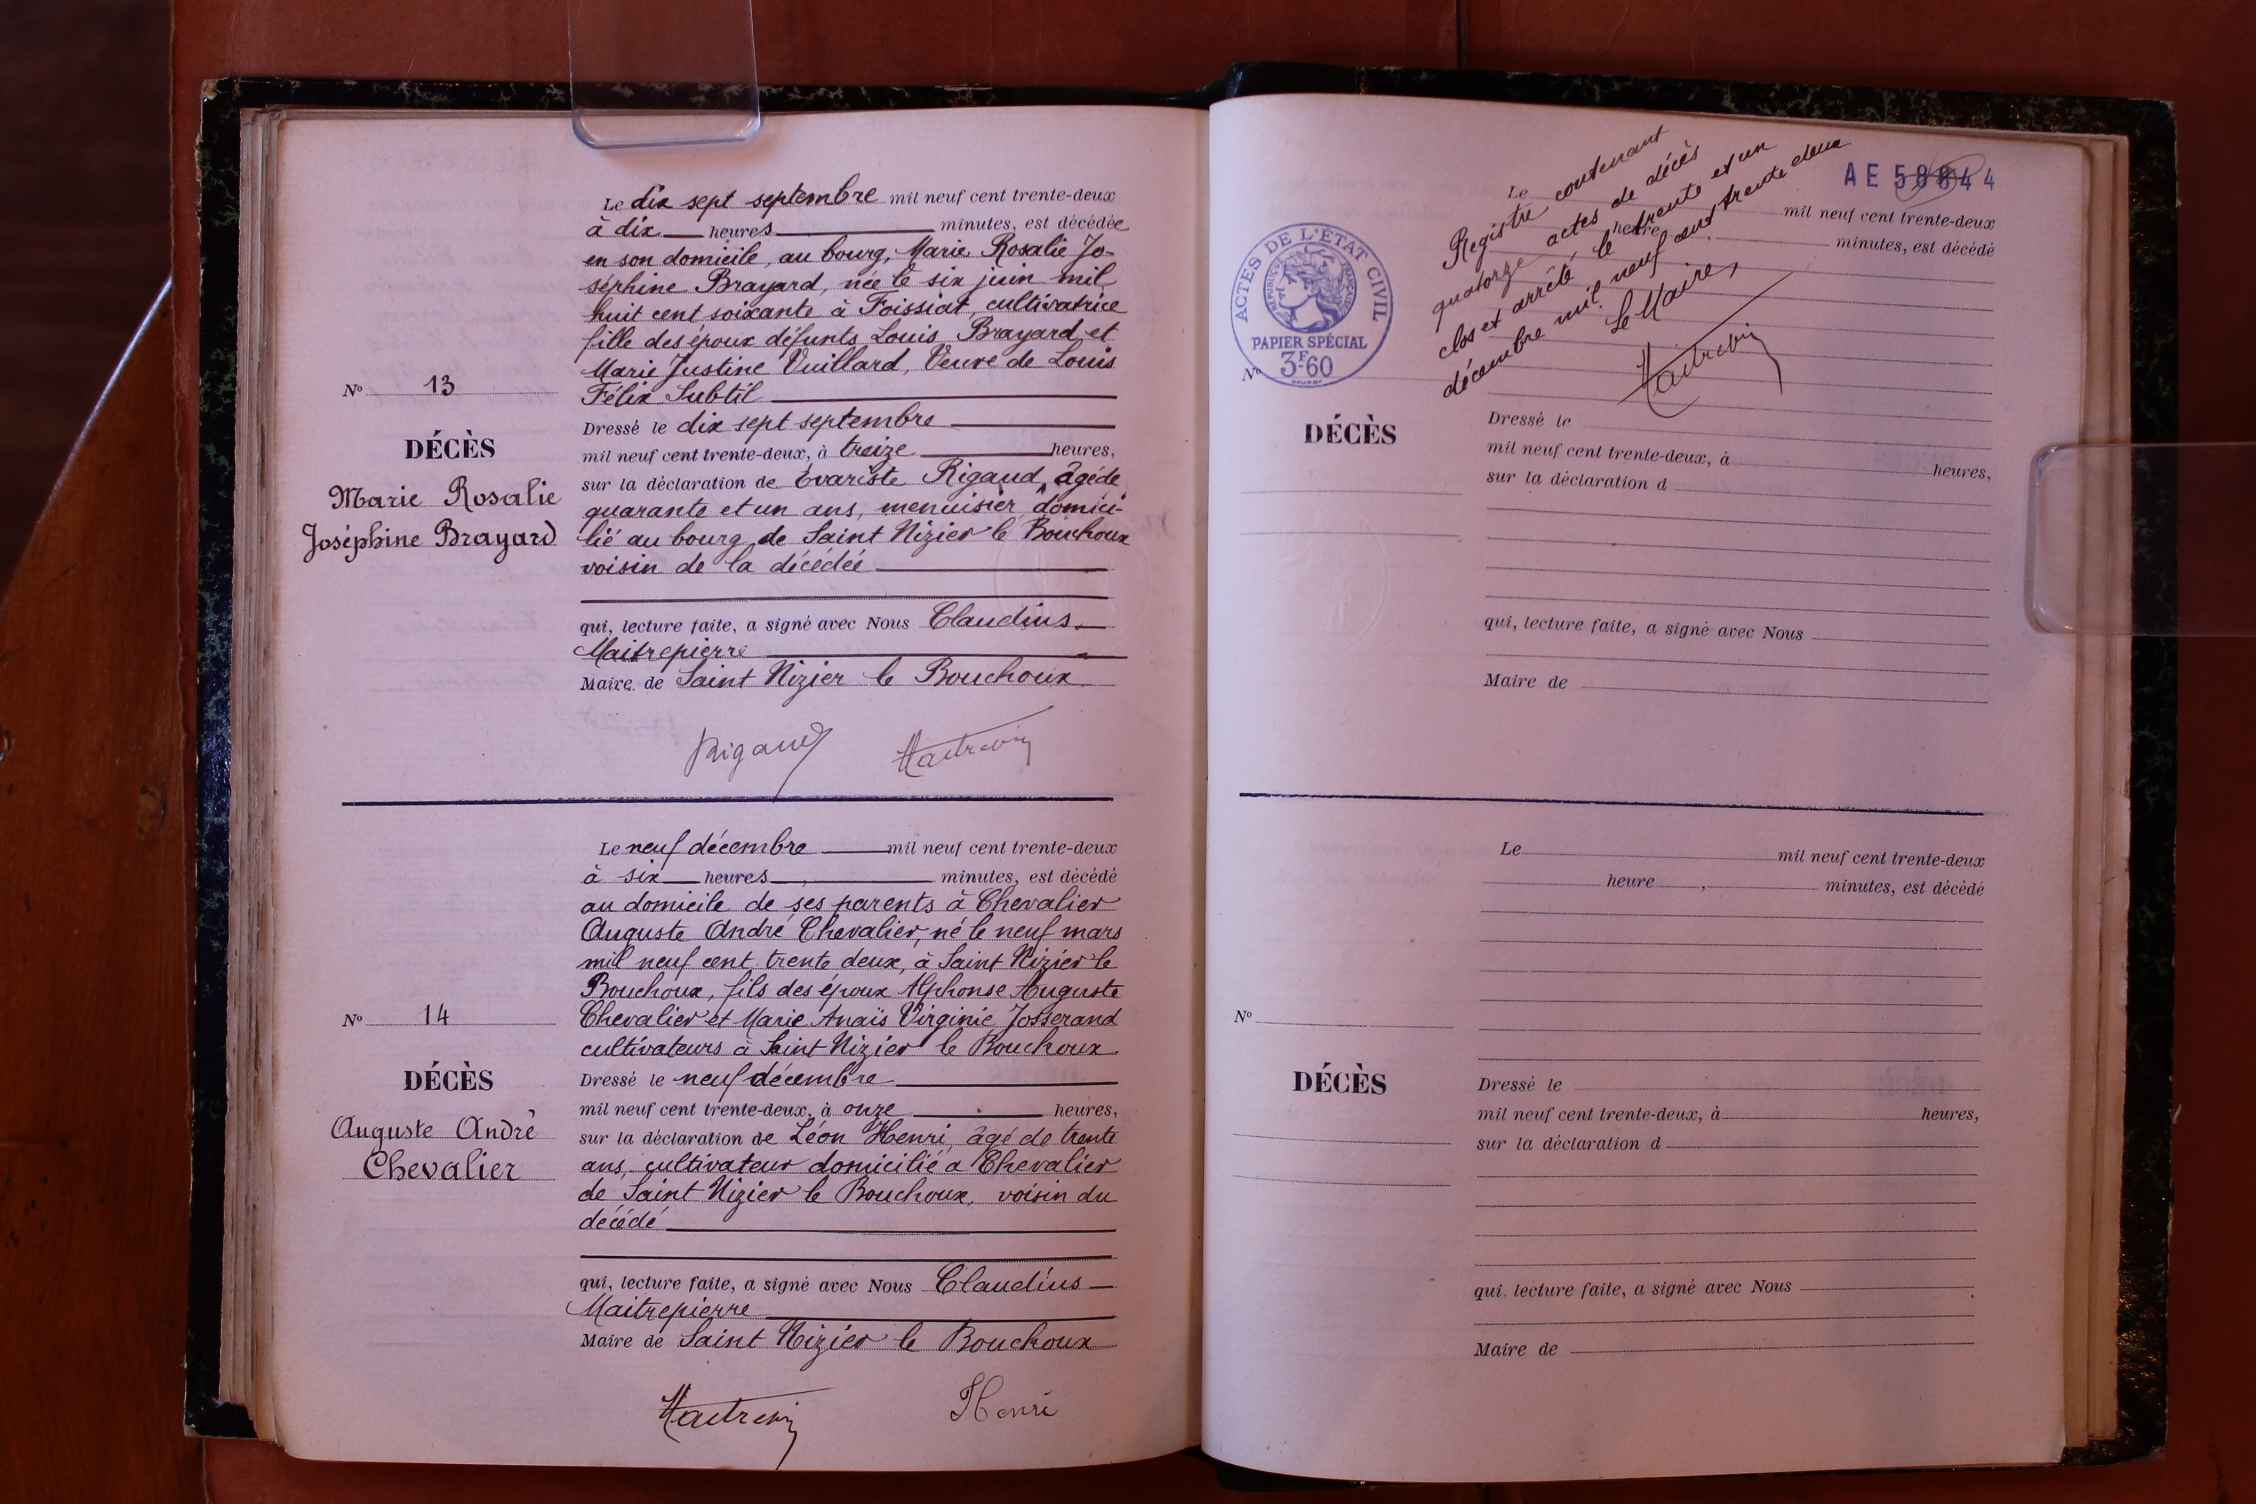 Le dix sept septembre mil neuf cent trente-deux
à dix heures minutes, est décédée
en son domicile, au bourg, Marie Rosalie Jo-
séphine Brayard, née le six juin mil
huit cent soixante à Foissiat, cultivatrice
fille des époux défunts Louis Brayard et
Marie Justine Vuillard, Veuve de Louis
Félix Subtil
Nº 13
DÉCÈS
Marie Rosalie
Joséphine Brayard
Dressé le dix sept septembre
mil neuf cent trente-deux, à treize heures,
sur la déclaration de Évariste Rigaud, âgé de
quarante et un ans, menuisier, domici-
lié au bourg de Saint Nizier le Bouchoux
voisin de la décédée
qui, lecture faite, a signé avec Nous Claudius
Maitrepierre
Maire de Saint Nizier le Bouchoux
Rigaud
Le neuf décembre mil neuf cent trente-deux
à six heures, minutes, est décédé
au domicile de ses parents à Chevalier
Auguste André Chevalier, né le neuf mars
mil neuf cent trente deux, à Saint Nizier le
Bouchoux, fils des époux Alphonse Auguste
Chevalier et Marie Anaïs Virginie Josserand
cultivateurs à Saint Nizier le Bouchoux
Nº 14
DÉCÈS
Auguste André
Chevalier
Dressé le neuf décembre
mil neuf cent trente-deux, à onze heures,
sur la déclaration de Léon Henri, âgé de trente
ans, cultivateur domicilié a Chevalier
de Saint Nizier le Bouchoux, voisin du
décédé
qui, lecture faite, a signé avec Nous Claudius
Maitrepierre
Maire de Saint Nizier le Bouchoux
Henri
AE 58844
Registre contenant
quatorze actes de décès
clos et arrêté le trente et un
décembre mil neuf cent trente deux
Le Maire,
ACTES DE L'ÉTAT CIVIL
RÉPUBLIQUE FRANÇAISE
PAPIER SPÉCIAL
3F60
Le mil neuf cent trente-deux
heure minutes, est décédé
Nº
DÉCÈS
Dressé le
mil neuf cent trente-deux, à heures,
sur la déclaration d
qui, lecture faite, a signé avec Nous
Maire de
Le mil neuf cent trente-deux
heure, minutes, est décédé
Nº
DÉCÈS
Dressé le
mil neuf cent trente-deux, à heures,
sur la déclaration d
qui, lecture faite, a signé avec Nous
Maire de